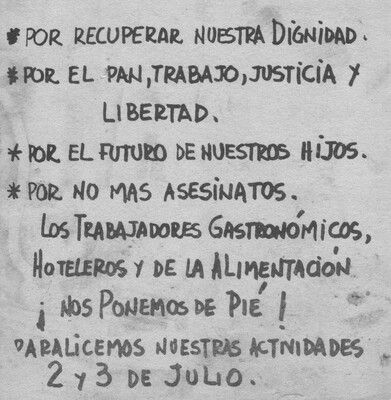 * POR RECUPERAR NUESTRA DIGNIDAD.
* POR EL PAN, TRABAJO, JUSTICIA Y
LIBERTAD.
* POR EL FUTURO DE NUESTROS HIJOS.
* POR NO MAS ASESINATOS.
LOS TRABAJADORES GASTRONÓMICOS,
HOTELEROS Y DE LA ALIMENTACIÓN
¡ NOS PONEMOS DE PIÉ !
PARALICEMOS NUESTRAS ACTIVIDADES
2 Y 3 DE JULIO.